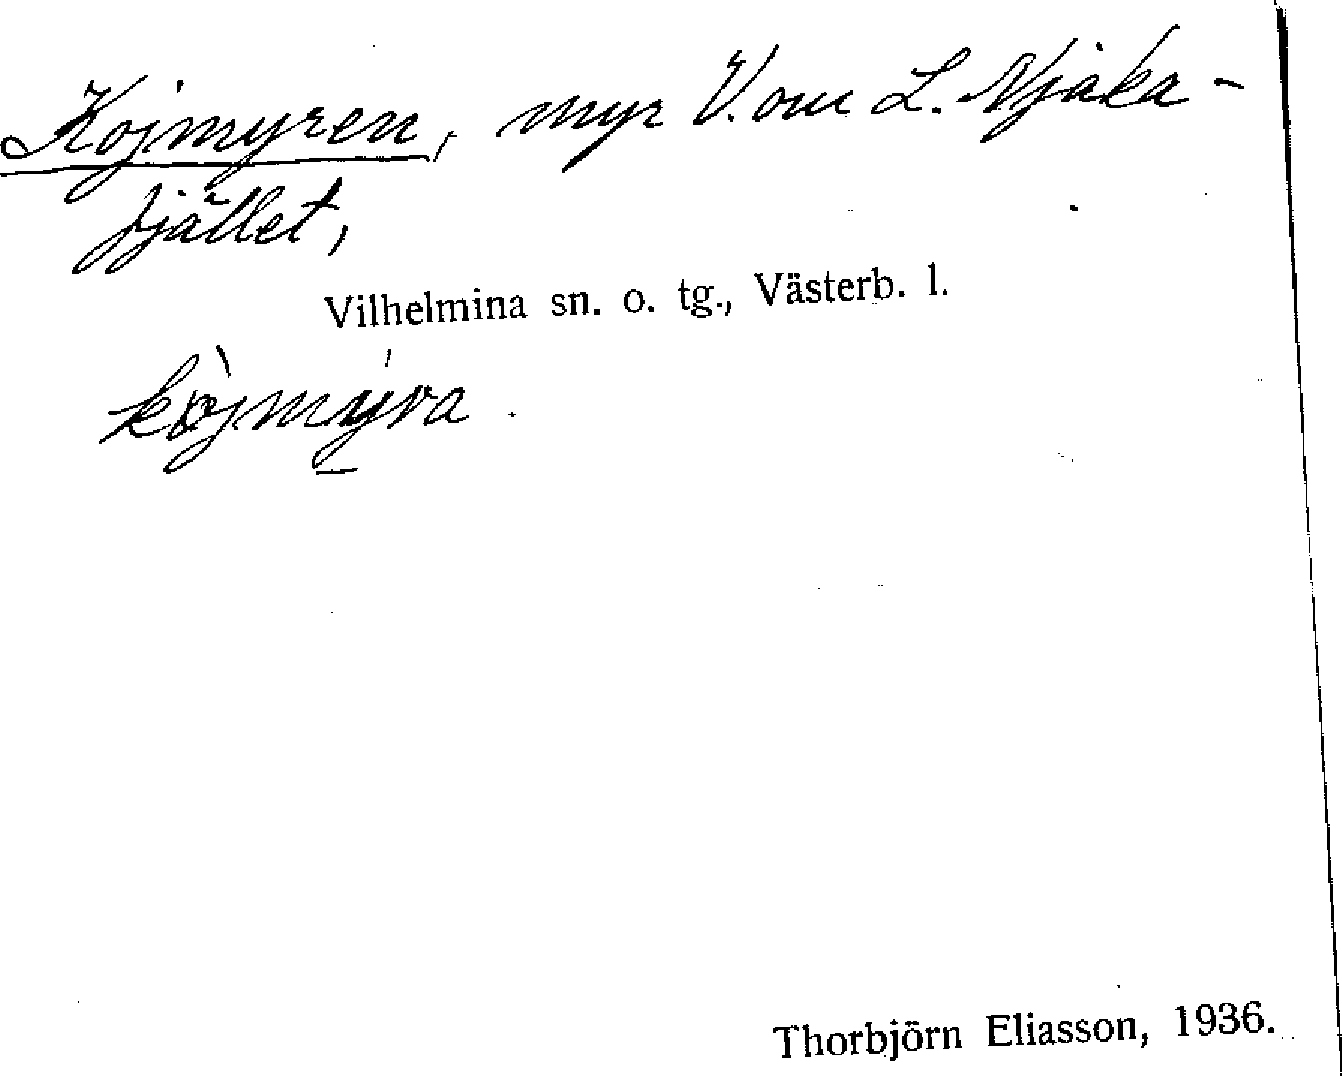 Kojmyren, myr V. om L. Njaka-
fjället,
Vilhelmina sn. o. tg., Västerb. l.
kòjmýra.
Thorbjörn Eliasson, 1936.